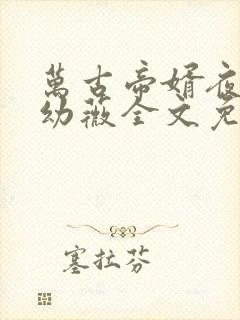 萬古帝婿夜
幼薇全文免
塞拉芬